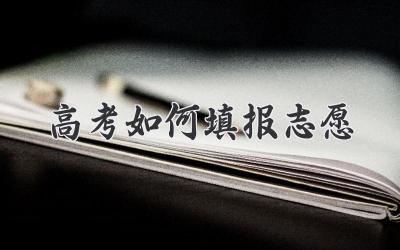 高考如何填报志愿